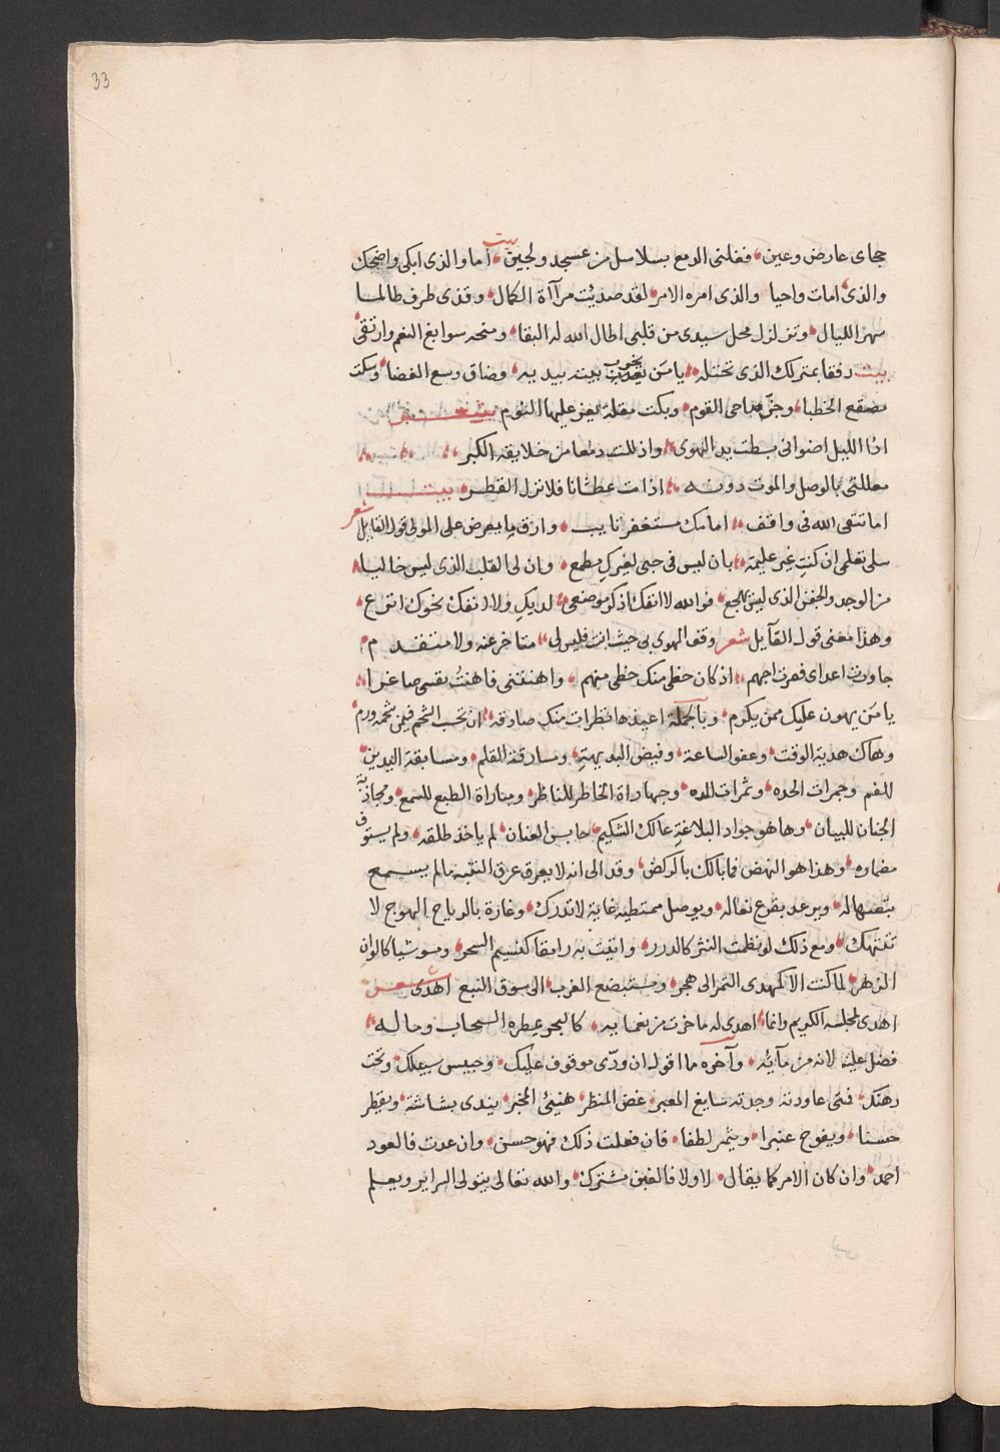 33
حجاى عارض وعين، فغلنى الدمع بسلاسل من عسجد ولجين، بيت أما والذى ابكى واضحك
والذى امات واحيا والذى امره الامر، لقد صديت مرآة الكمال، وقذى طرف طالما
سهر الليال، وتزلزل محل سيدى من قلبى اطال الله له البقا، ومنحه سوابغ النعم وارتقى
بيت رفقا بمنزلك الذى تحتله، يا من يخرب بيته بيديه، وضاق وسع الفضا، وسكت
مصقع الخطبا، وجن صاحى القوم، وبكت مقلة يعز عليها النوم
اذا الليل اضوانى بسطت يد الهوى، واذللت دمعا من خلايقه الكبر،
معللتى بالوصل والموت دونه، اذا مت عطشانا فلا نزل القطر، بيت
اما تتقى الله فى واقف، امامك مستغفر تايب، وارق يا معرض على المولى قول القايل شعر
سلى تعلمى ان كنت غير عليمة، بان ليس فى حبى لغيرك مطمع، وان لى القلب الذى ليس خاليا،
من الوجد والجفن الذى ليس يهجع، فوالله لا انفك اذكر موضعى، لديك ولا انفك نحوك انزع،
وهذا معنى قول القآيل شعر وقف الهوى بى حيث انت فليس لى، متاخر عنه ولا متقدم
جاورت اعداى فصرت احبهم، اذ كان حظى منك حظى منهم، واهنتنى فاهنت نفسى صاغرا،
يا من يهون عليك ممن يكرم، وبالجملة اعيذها نظرات منك صادقة، ان تحسب الشحم فيمن شحمه ورم،
وهاك هدية الوقت، وعفو الساعة، وفيض البديهة، ومسارقة القلم، ومسابقة اليدين
للفم وجمرات الحده، وثمرات المده، ومجاراة الخاطر للناظر، ومباراة الطبع للسمع، ومجاذبة
الجنان للبيان، وها هو جواد البلاغة عالك الشكيم، حابس العنان، لم ياخذ طلقه، ولم يستوف
مضماره، وهذا هو النهض فما بالك بالركض، وقد الى انه لا يعرق عرق القبة مالم يسمع
بتصهاله، ويرعد بقرع نعاله، ويوصل ممتطيه غاية لا تدرك، وغارة بالرياح الهوج لا
تنتهك، ومع ذلك لو نظمت النثر كالدرر، واتيت به رامقا كنسيم السحر، وموشيا كالوان
الزهر، لما كنت الا كمهدى التمر الى هجر، ومستبضع الغرب الى سوق النبع اهدى شعر
اهدى لمجلسه الكريم وانما، اهدى له ما حزت من نعمايه، كالبحر يمطره السحاب وماله،
فضل عليه لانه من مآيه، وآخره ما اقوله ان ودى موقوف عليك، وحبيس سبيلك، وتحت
رهنك، فمتى عاودته وجدته سايغ المعبر، غض المنظر، هنيئ المخبر، يندى بشاشة، ويقطر
حسنا، ويفوح عنبرا، ويثمر لطفا، فان فعلت ذلك فهو حسن، وان عدت فالعود
احمد، وان كان الامر كما يقال، لا ولا فالغبن مشترك، والله تعالى يتولى السراير ويعلم